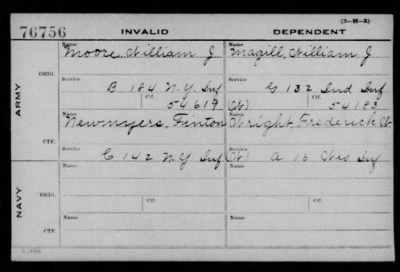 (3-H-2)
76756 INVALID DEPENDENT
Name Name
Moore, William J Magill, William J
ARMY
ORIG.
Service Service
B 184 N.Y. Inf G 132 Ind Inf
Ctf. Ctf.
54619 (Ct) 54183
CTF.
Name Name
Newmyers, Finton Wright, Frederick
Service Service
C 142 N.Y Inf (Ct) A 16 Wis Inf
NAVY
ORIG.
Name Name
Service Ctf. Service Ctf.
CTF.
Name Name